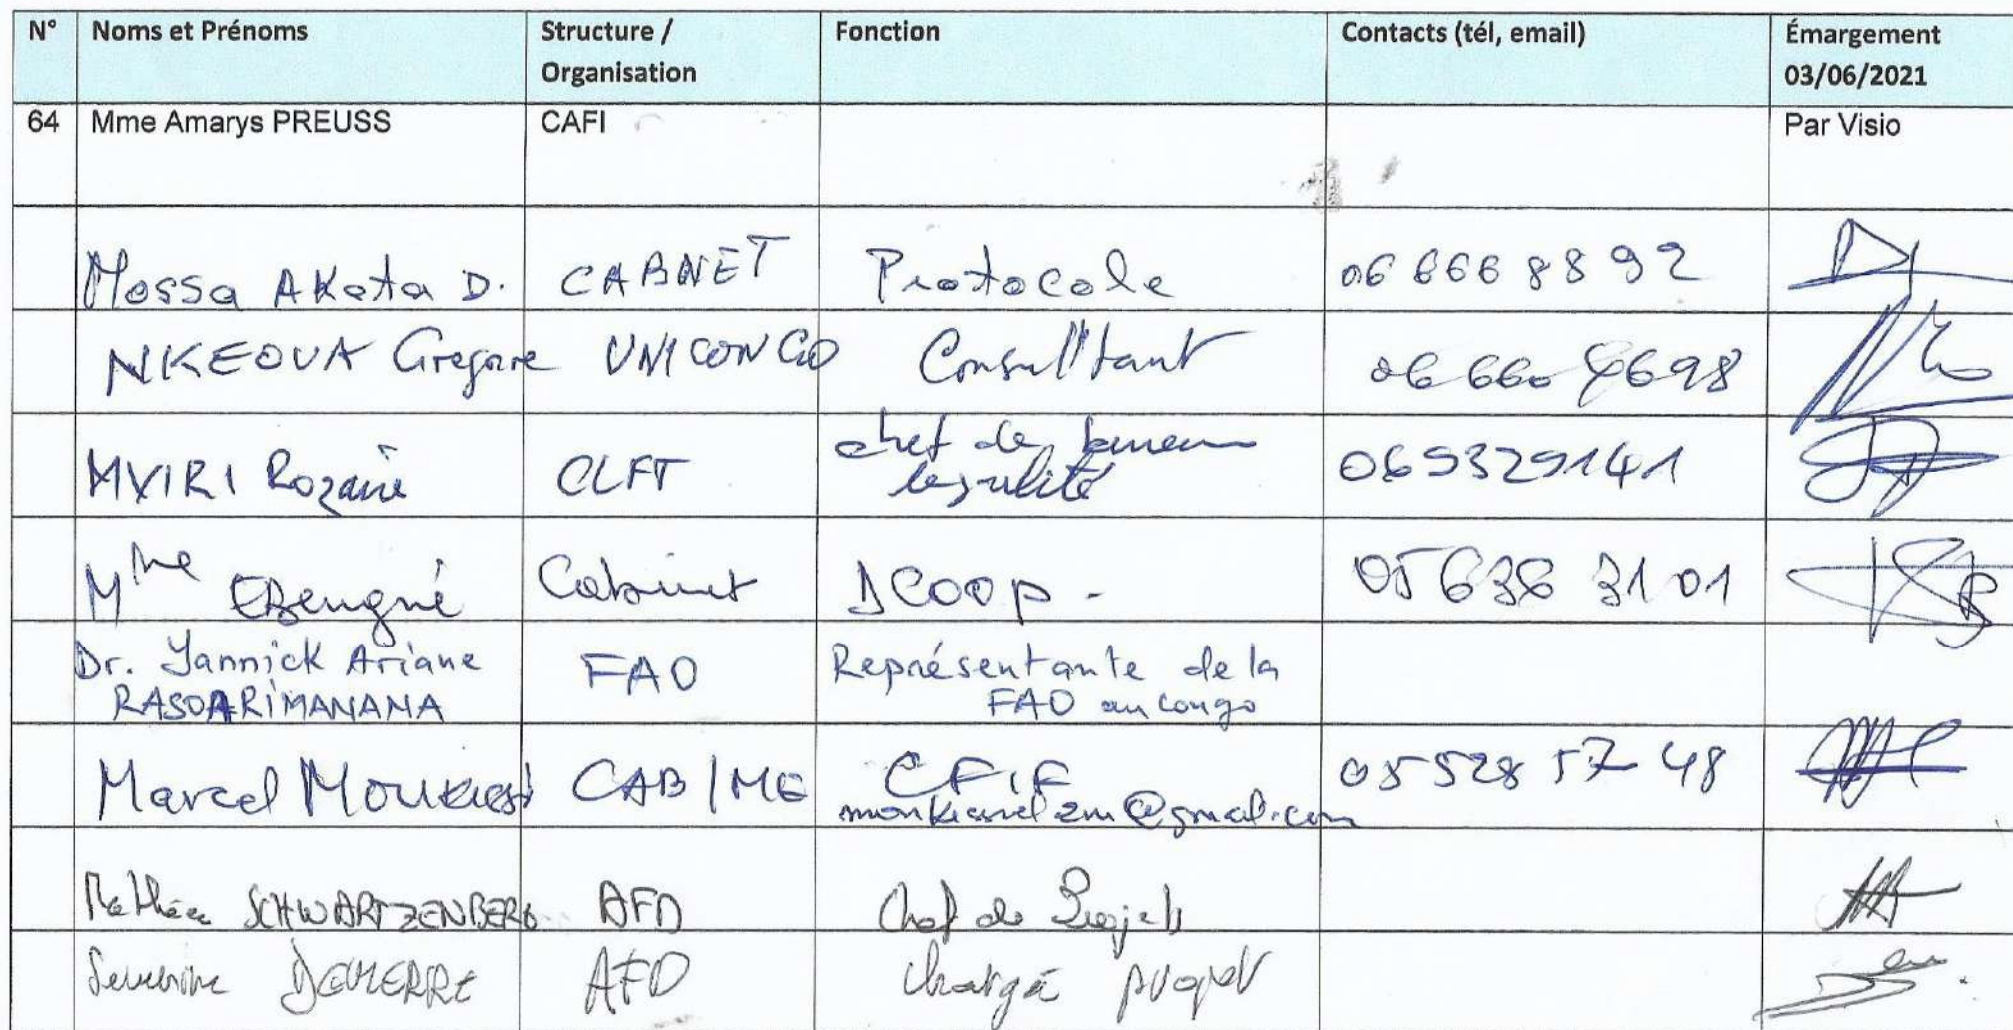 N° Noms et Prénoms Structure / Organisation Fonction Contacts (tél, email) Émargement 03/06/2021
64 Mme Amarys PREUSS CAFI Par Visio
Mossa AKata D. CABNET Protocole 06 666 88 92
NKEOUA Gregoire UNICONGO Consultant 06 660 8698
MVIRI Rozaire CLFT chef de bureau légalité 069329141
Mme Cabinet DCOOP - 05 636 31 01
Dr. Yannick Ariane RASOARIMANANA FAO Représentante de la FAO au Congo
Marcel CAB/ME CFIF 05 528 57 48
Mathieu SCHWARTZENBERG AFD Chef de Projets
Severine AFD Chargé projet